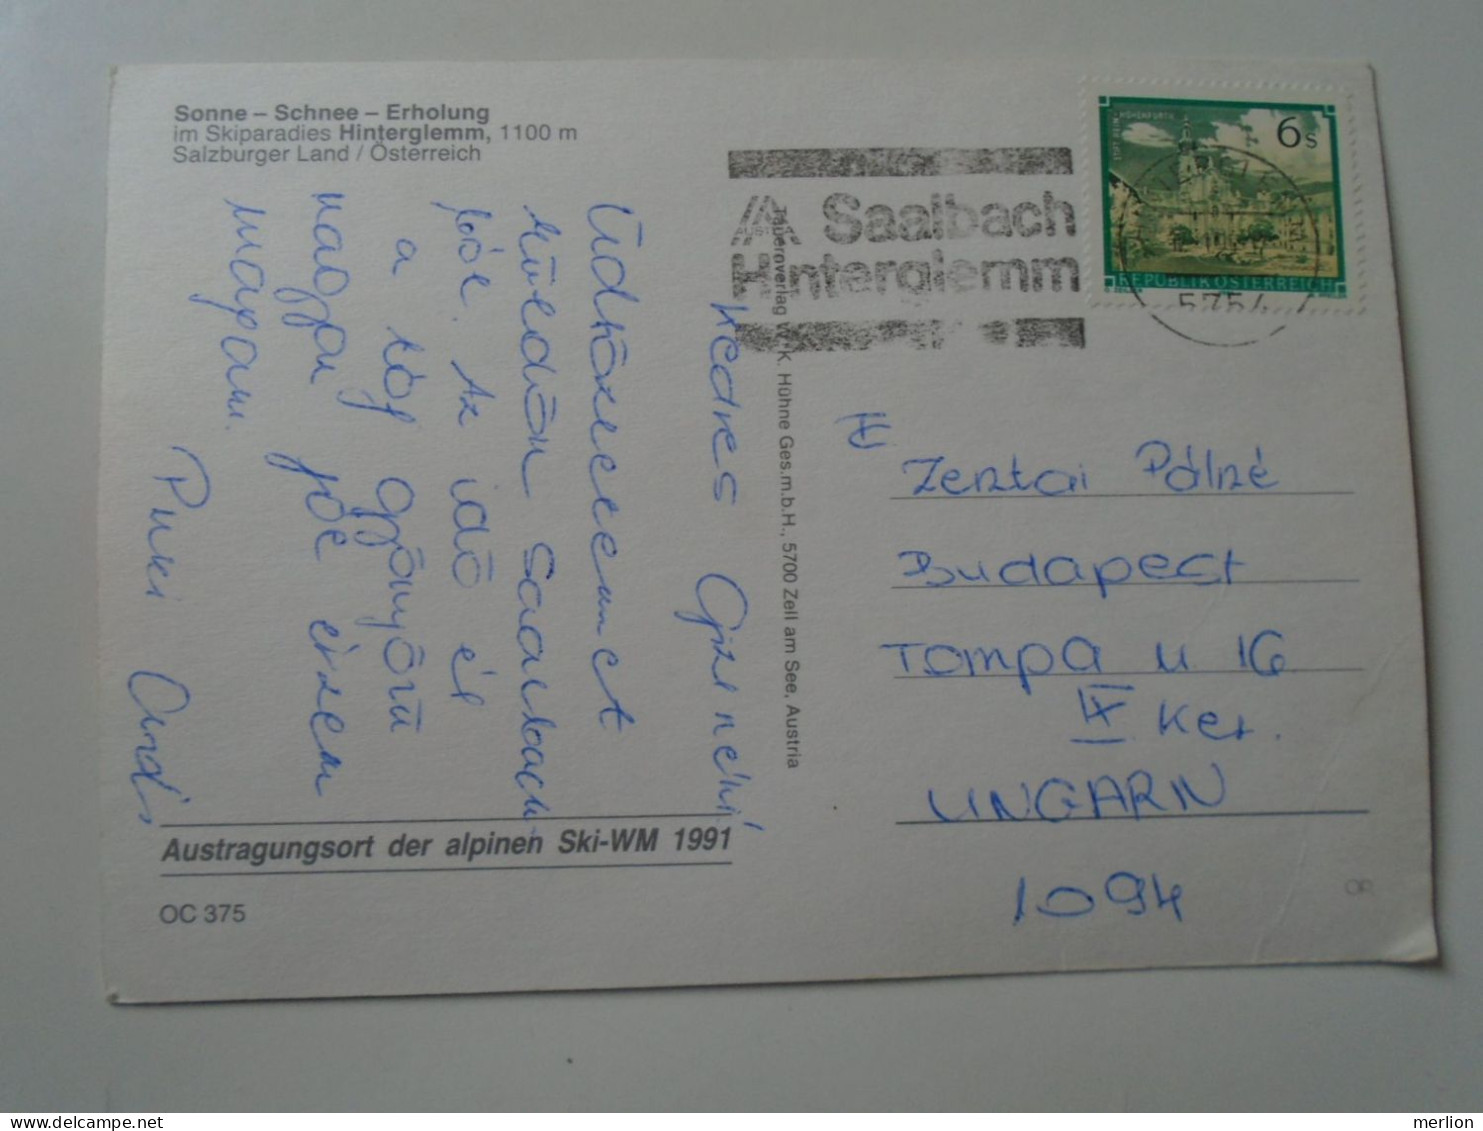 Sonne – Schnee – Erholung
im Skiparadies Hinterglemm, 1100 m
Salzburger Land / Österreich
Saalbach
Hinterglemm
6 S
REPUBLIK ÖSTERREICH
5754
Kedves Gizi néni!
Üdvözletemet
küldöm Saalbach-
ból. Az idő és
a táj gyönyörű
nagyon jól érzem
magam.
Puszi
Tauernverlag W. K. Hühne Ges.m.b.H., 5700 Zell am See, Austria
Zentai Pálné
Budapest
Tompa u 16
IX Ker.
UNGARN
1094
Austragungsort der alpinen Ski-WM 1991
OC 375